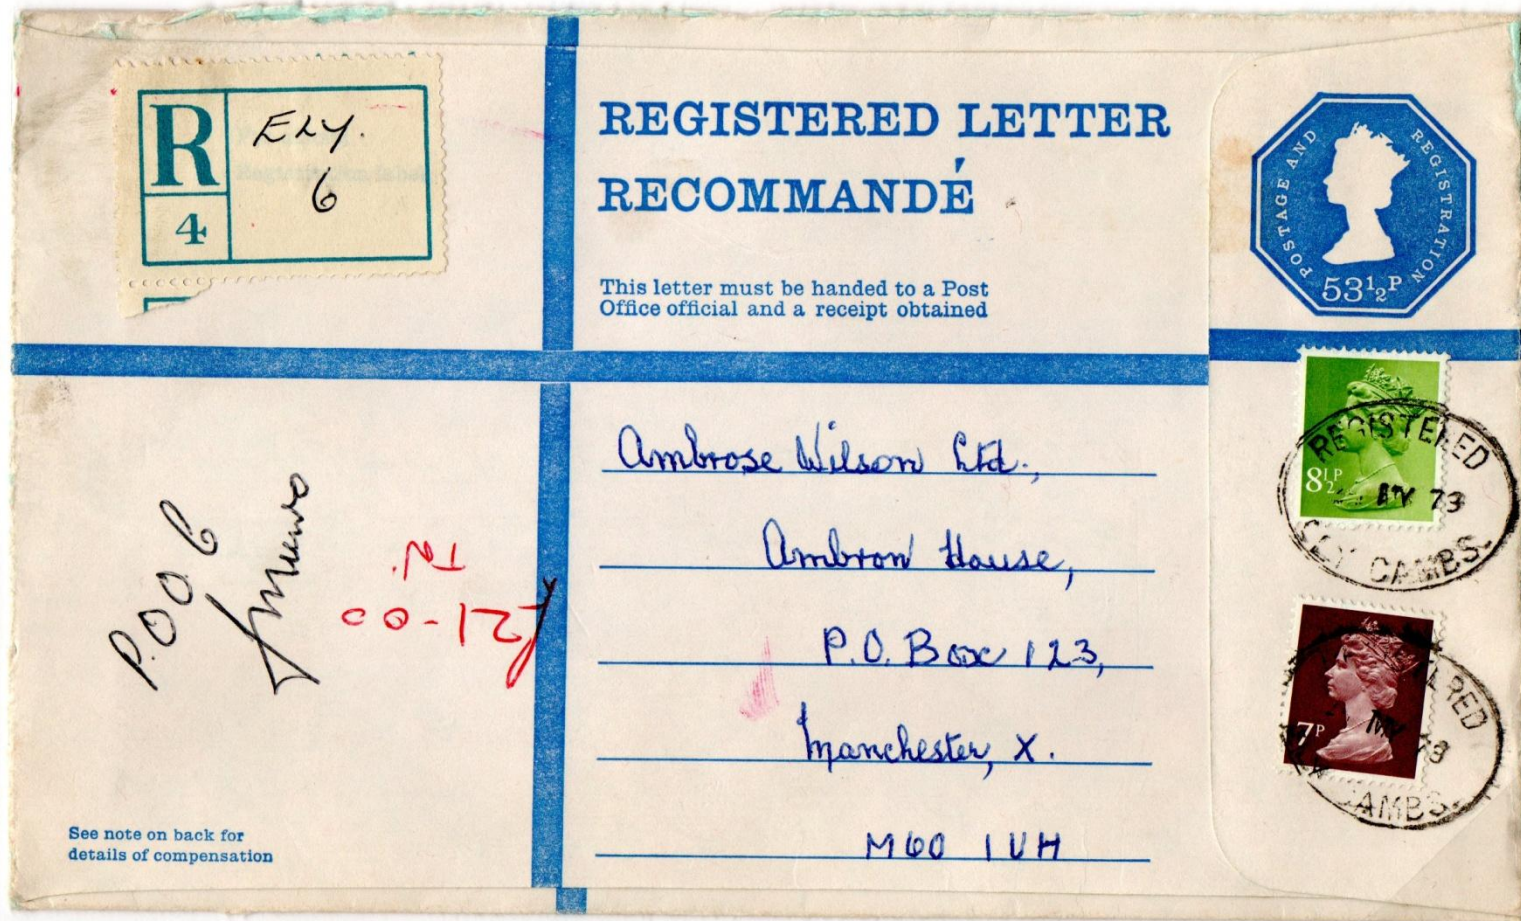 R
4
ELY.
6
REGISTERED LETTER
RECOMMANDÉ
This letter must be handed to a Post
Office official and a receipt obtained
POSTAGE AND REGISTRATION
53½P
8½P
REGISTERED
MY
ELY CAMBS.
7P
MY
CAMBS.
Ambrose Wilson Ltd.,
Ambron House,
P.O. Box 123,
Manchester, X.
M60 1UH
P.O.O. 6
See note on back for
details of compensation